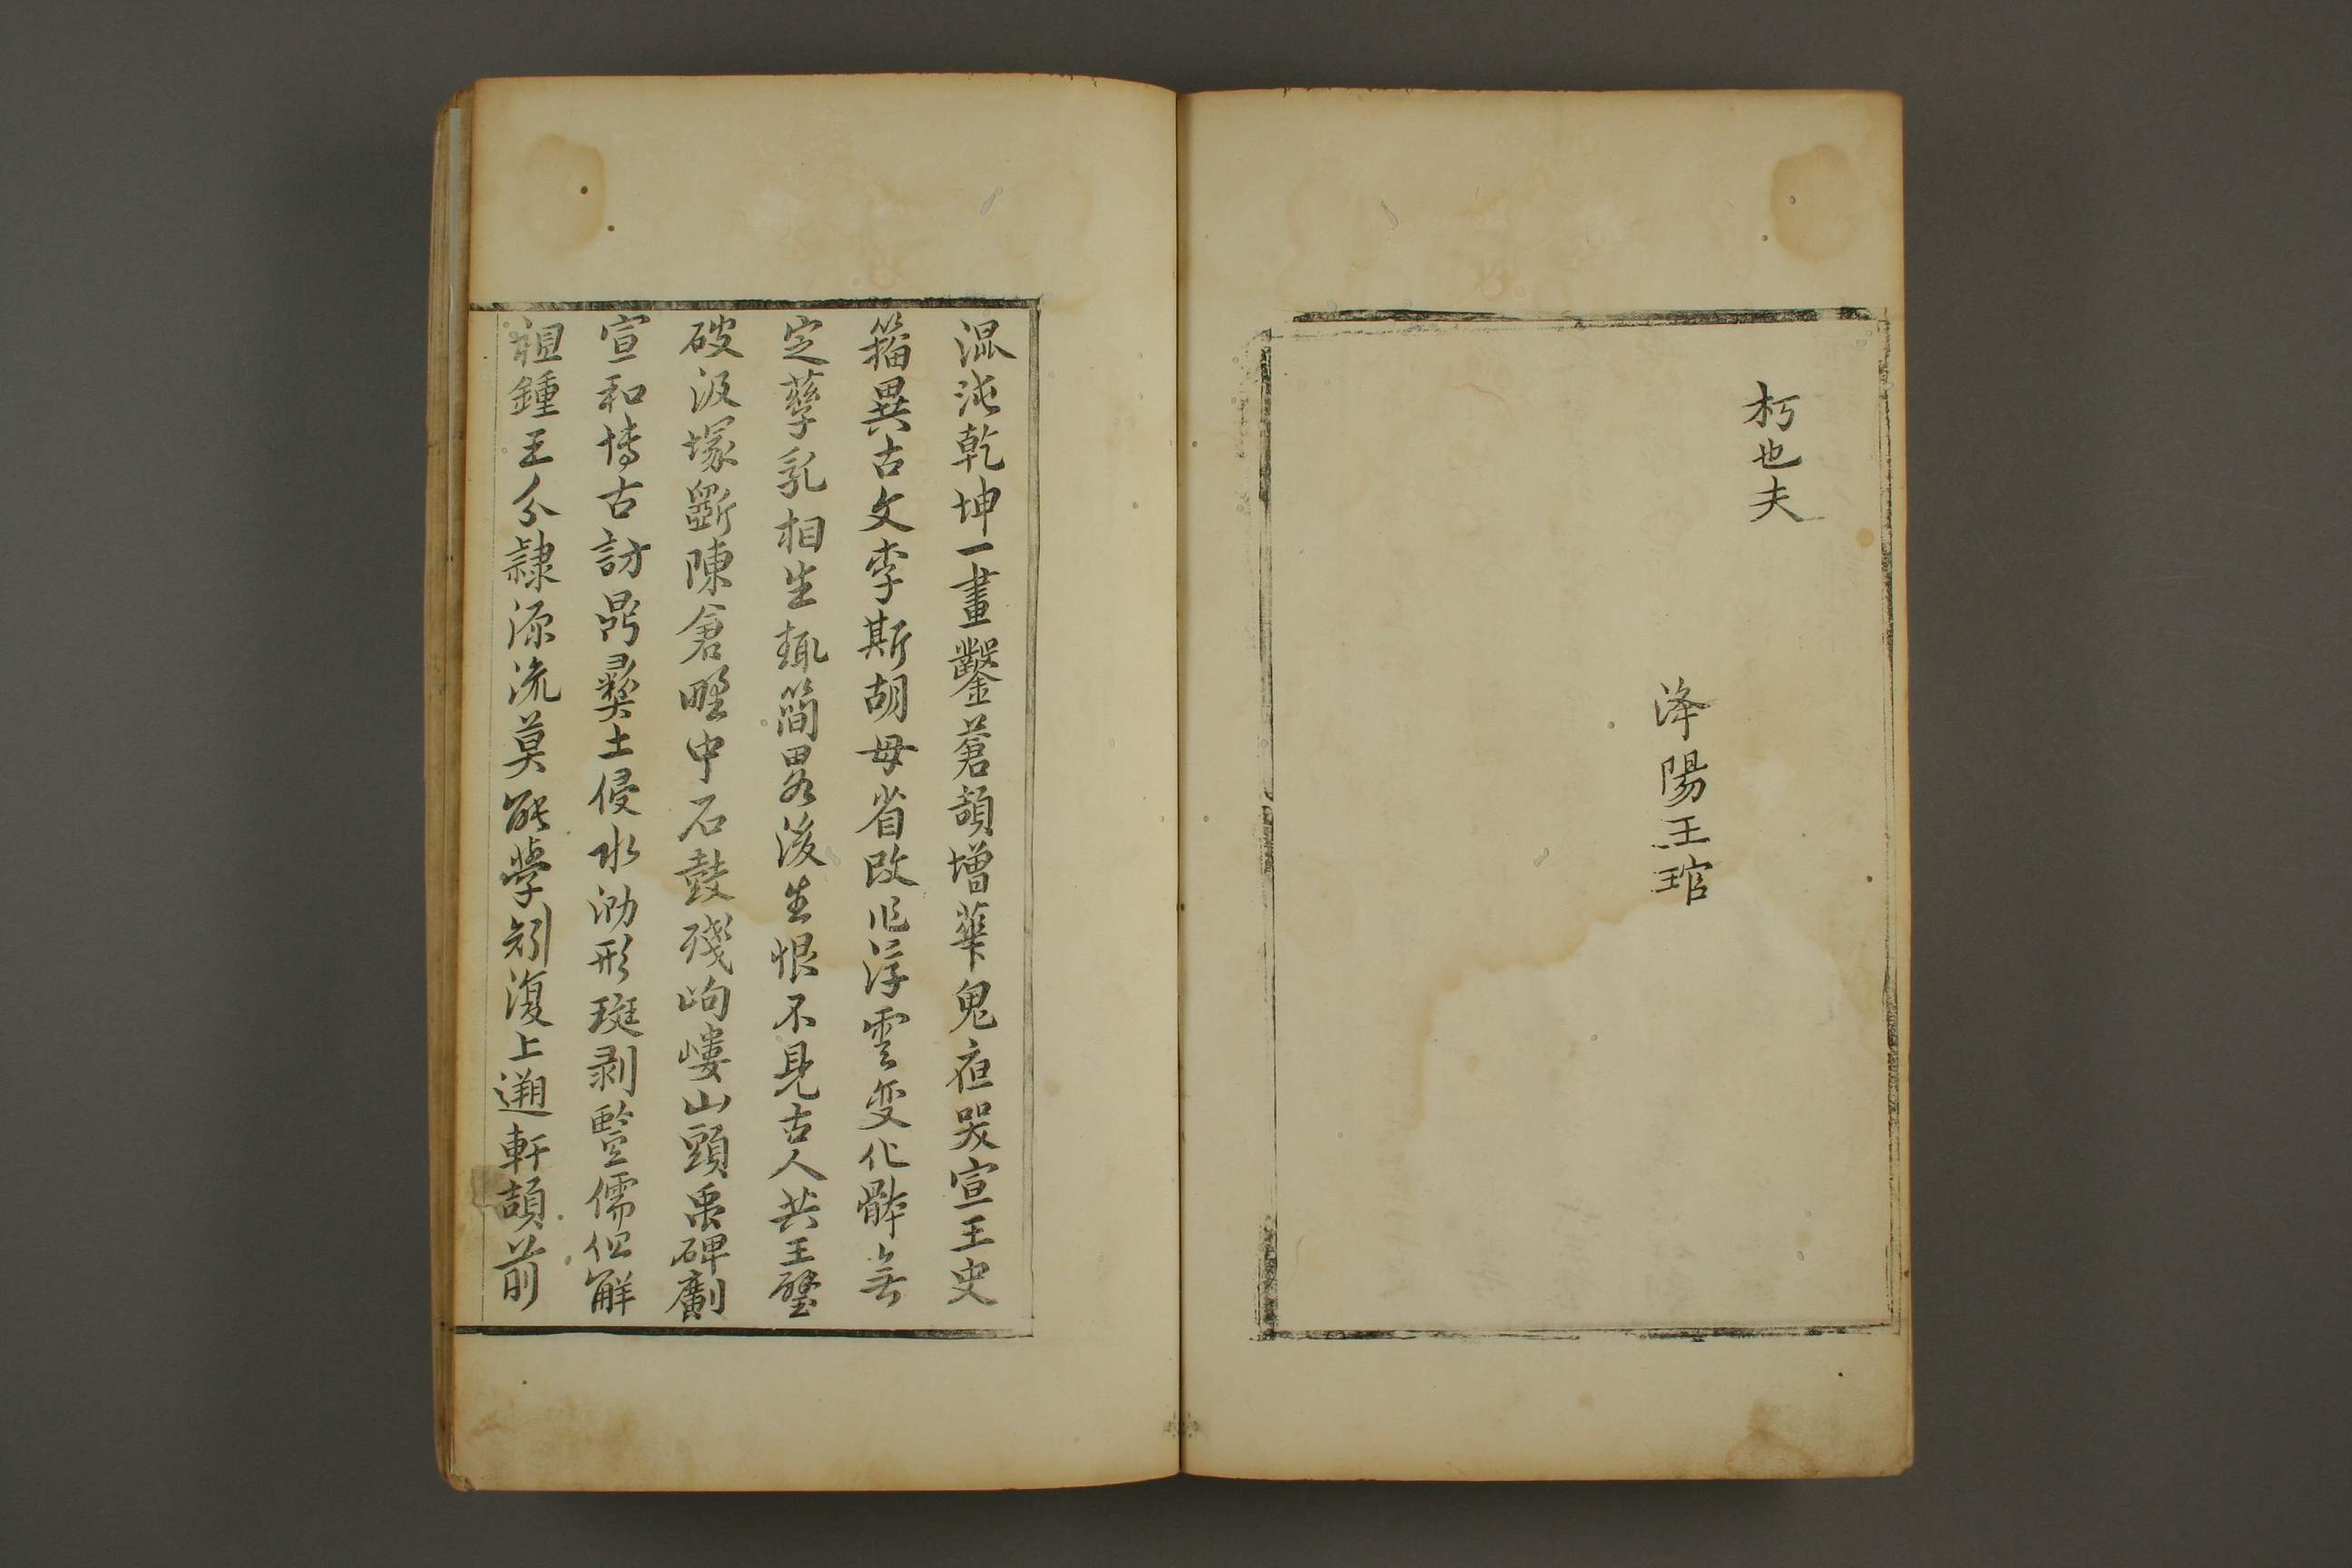 朽也夫
洚陽王琯
混沌乾坤一畫鑿蒼頡增華鬼夜哭宣王史
籕異古文李斯胡母省改作浮雲变化骵无
定孳乳相生輒簡畧後生恨不見古人共王壁
破汲塚斵陳倉野中石鼓殘岣嶁山頭禹碑劘
宣和博古訪鼎彜土侵水泐形斑剥竪儒但觧
祖鍾王分隸源流莫能學矧復上遡軒頡前